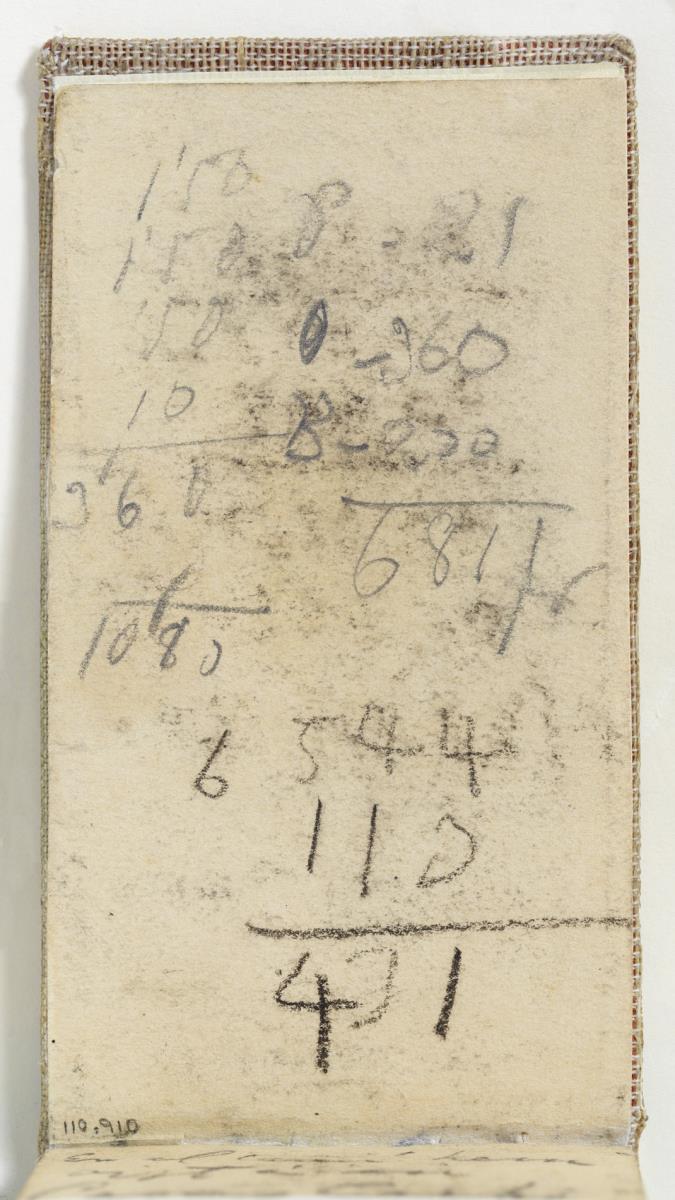 150
150 8 - 21
150 0 - 360
10 8 - 300
360
681 fr
1080
6 544
113
431
110.910